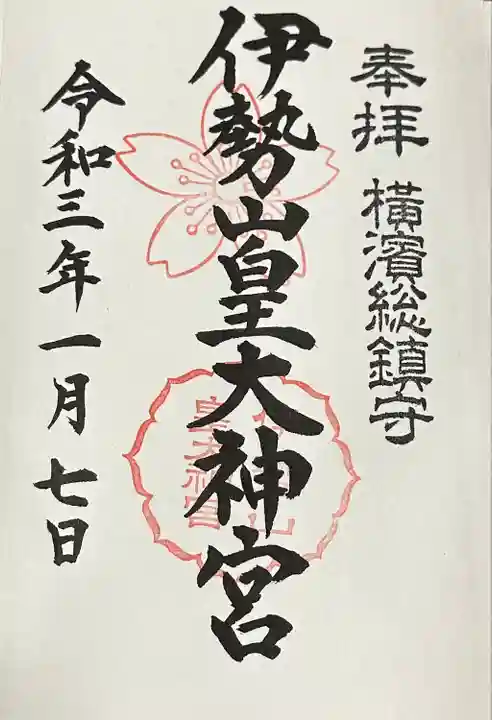 奉拝 橫濱総鎮守
伊勢山皇大神宮
令和三年一月七日